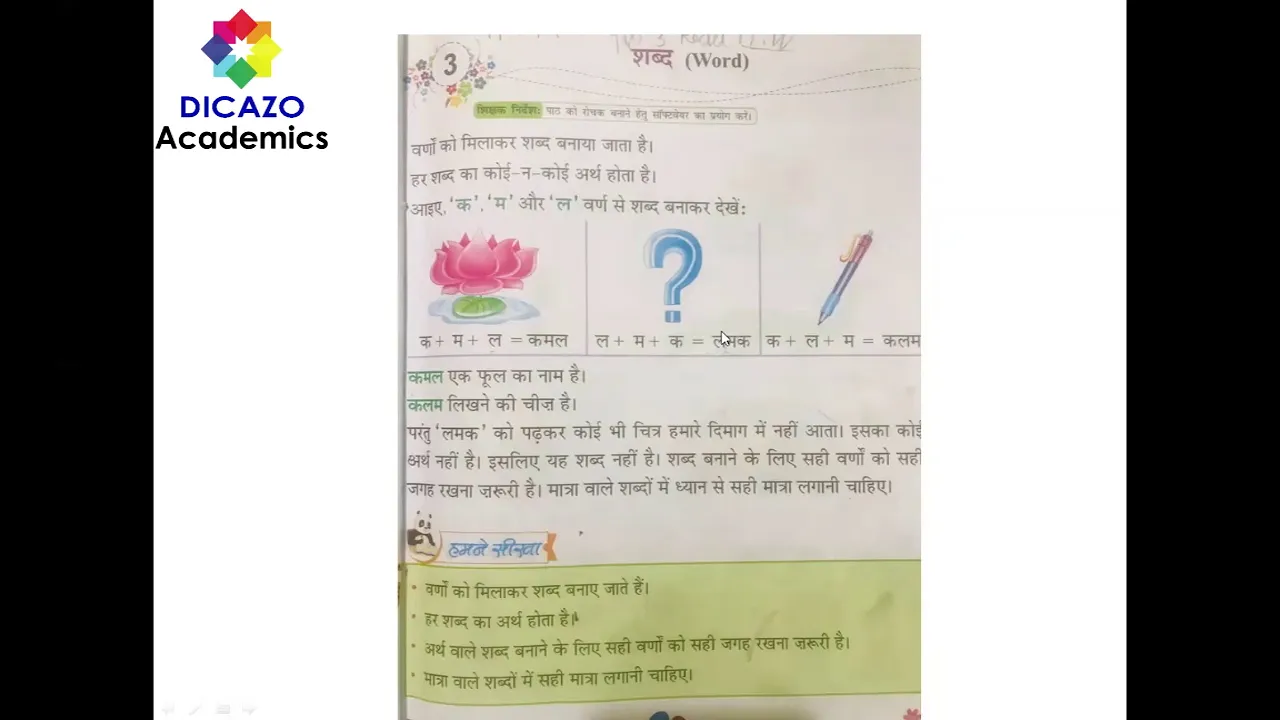 DICAZO
Academics
3
शब्द (Word)
शिक्षक निर्देश: पाठ को रोचक बनाने हेतु सॉफ्टवेयर का प्रयोग करें।
वर्णों को मिलाकर शब्द बनाया जाता है।
हर शब्द का कोई-न-कोई अर्थ होता है।
आइए, 'क', 'म' और 'ल' वर्ण से शब्द बनाकर देखें:
क + म + ल = कमल
ल + म + क = लमक
क + ल + म = कलम
कमल एक फूल का नाम है।
कलम लिखने की चीज़ है।
परंतु 'लमक' को पढ़कर कोई भी चित्र हमारे दिमाग में नहीं आता। इसका कोई
अर्थ नहीं है। इसलिए यह शब्द नहीं है। शब्द बनाने के लिए सही वर्णों को सही
जगह रखना ज़रूरी है। मात्रा वाले शब्दों में ध्यान से सही मात्रा लगानी चाहिए।
हमने सीखा
• वर्णों को मिलाकर शब्द बनाए जाते हैं।
• हर शब्द का अर्थ होता है।
• अर्थ वाले शब्द बनाने के लिए सही वर्णों को सही जगह रखना ज़रूरी है।
• मात्रा वाले शब्दों में सही मात्रा लगानी चाहिए।